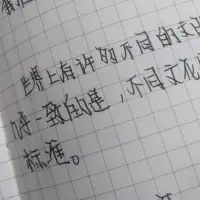 世界上有许多不同的文
一致的是，不同文化
标准。